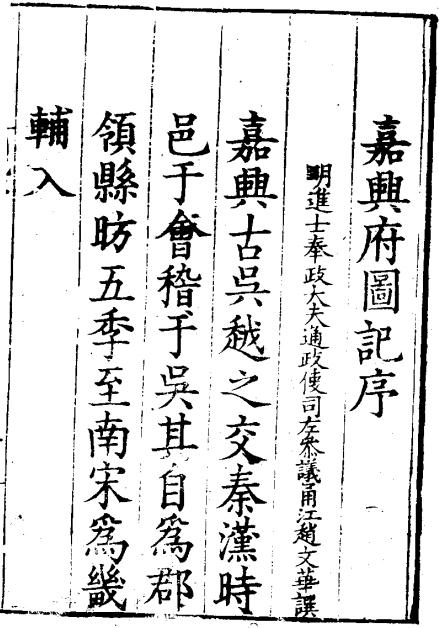 嘉興府圖記序
明進士奉政大夫通政使司左叅議甬江趙文華譔
嘉興古吳越之交秦漢時
邑于會稽于吳其自為郡
領縣昉五季至南宋為畿
輔入